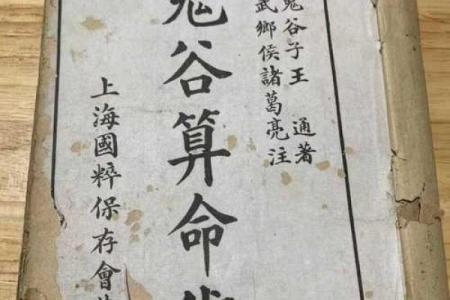 鬼谷子王通著
武鄉侯諸葛亮注
鬼谷算命術
上海國粹保存會